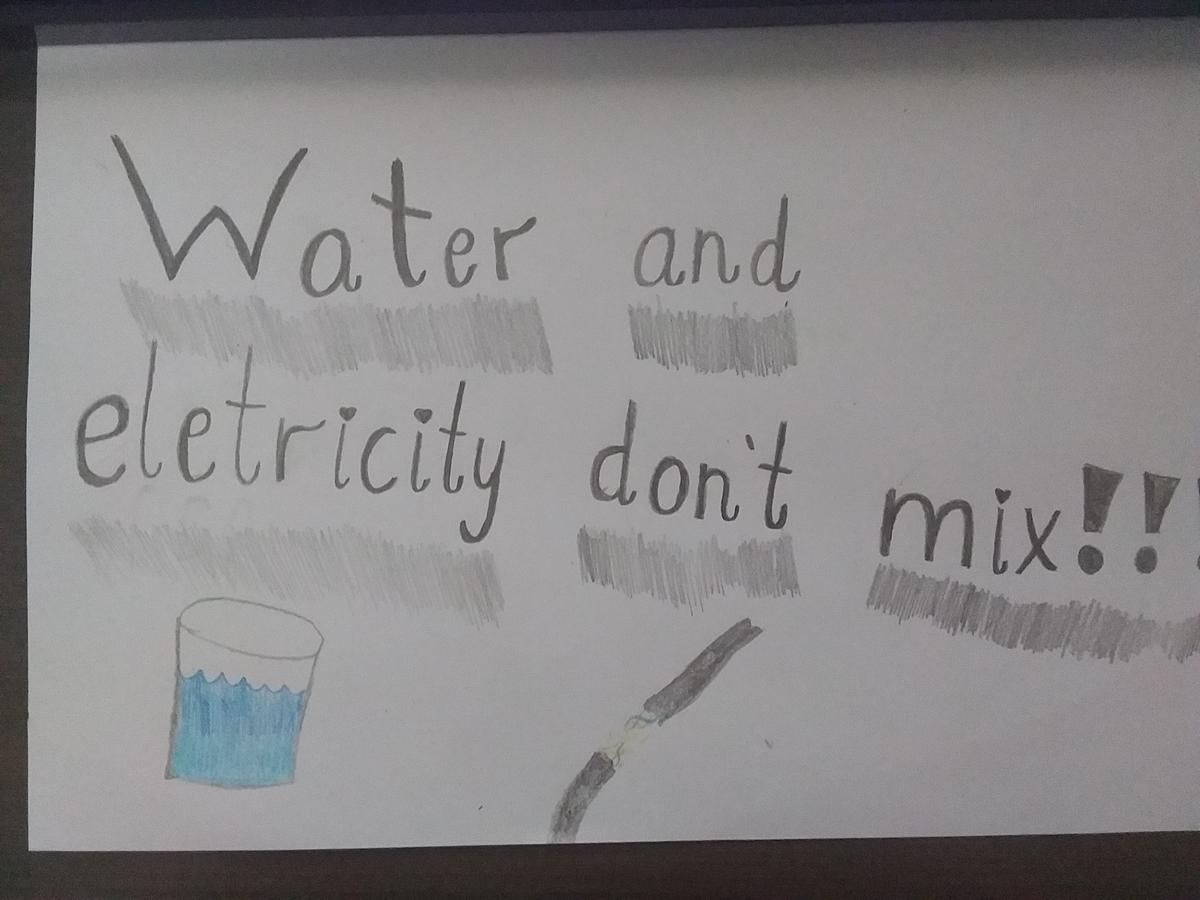 Water and
eletricity don't mix!!!